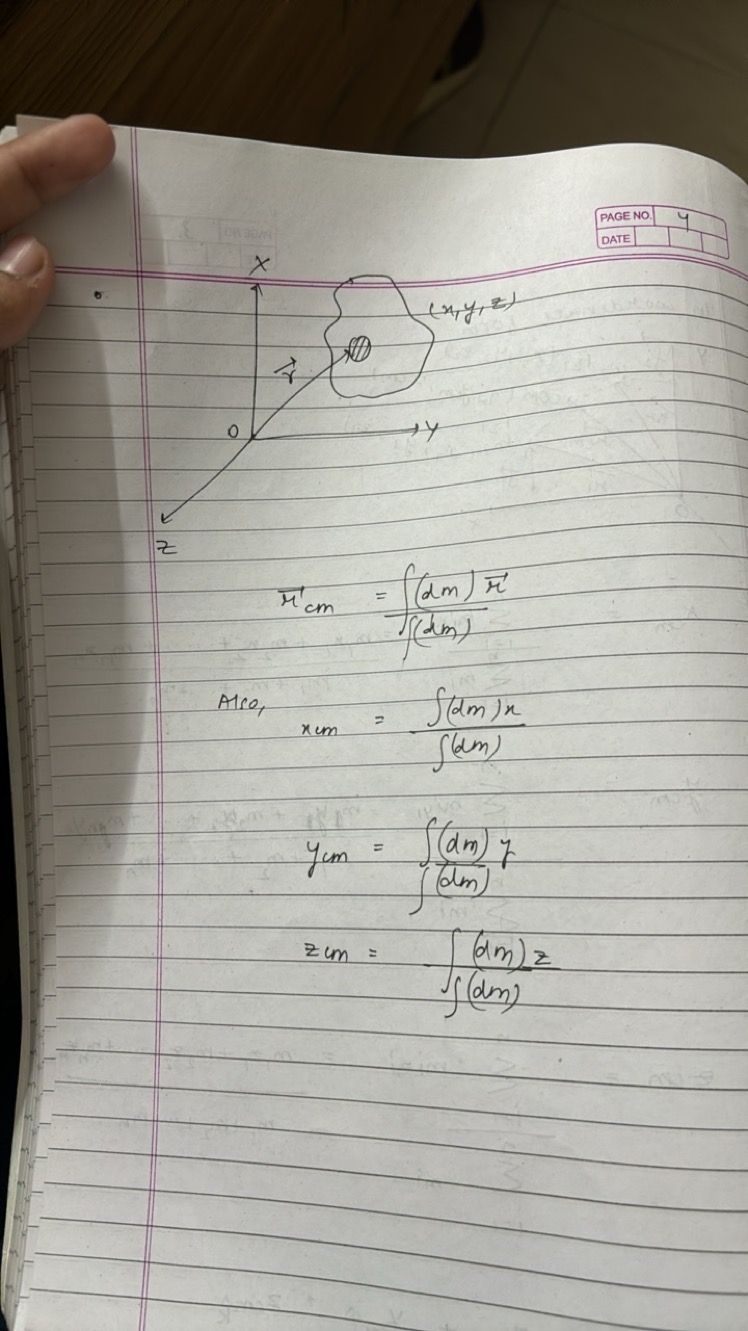 PAGE NO. 4
DATE
X
(x, y, z)
r⃗
O
Y
Z
r⃗cm = ∫(dm) r⃗ / ∫(dm)
Also,
xcm = ∫(dm)x / ∫(dm)
ycm = ∫(dm) y / ∫(dm)
zcm = ∫(dm) z / ∫(dm)